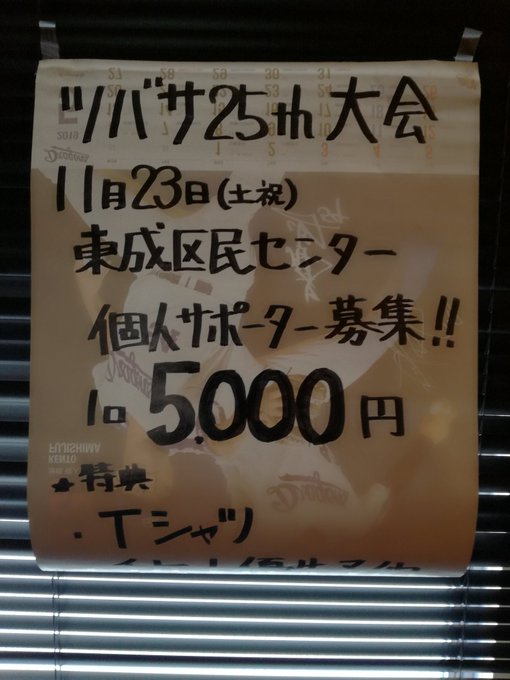 ツバサ25th大会
11月23日(土祝)
東成区民センター
個人サポーター募集!!
1口5,000円
★特典
・Tシャツ
2019
Dragons
FUJISHIMA
KENTO